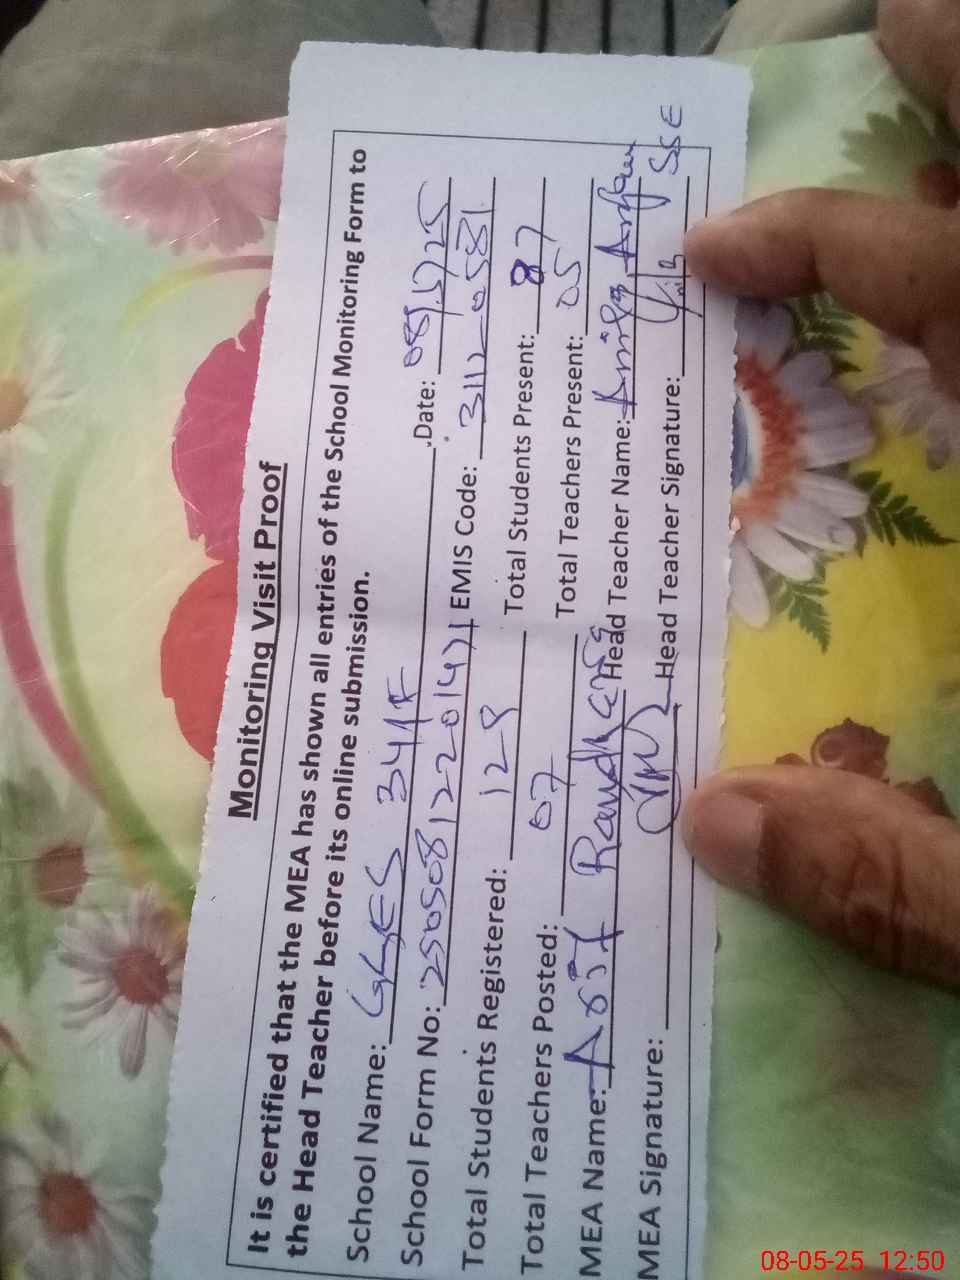 Monitoring Visit Proof
It is certified that the MEA has shown all entries of the School Monitoring Form to
the Head Teacher before its online submission.
School Name: GGES 341F Date: 08/5/25
School Form No: 25050812201471 EMIS Code: 31120581
Total Students Registered: 128 Total Students Present: 87
Total Teachers Posted: 07 Total Teachers Present: 05
MEA Name: Asif Head Teacher Name:
MEA Signature: Head Teacher Signature: SSE
08-05-25 12:50